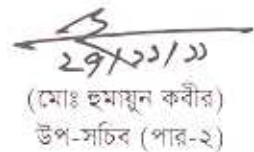 ২৭/১১/১১
(মোঃ হুমায়ুন কবীর)
উপ-সচিব (পার-২)